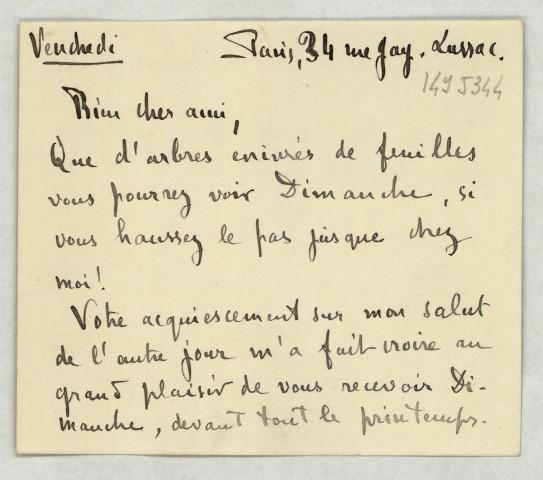 Vendredi Paris, 34 rue Gay-Lussac.
149 J 344
Bien cher ami,
Que d'arbres enivrés de feuilles
vous pourrez voir Dimanche, si
vous haussez le pas jusque chez
moi!
Votre acquiescement sur mon salut
de l'autre jour m'a fait croire au
grand plaisir de vous recevoir Di-
manche, devant tout le printemps.